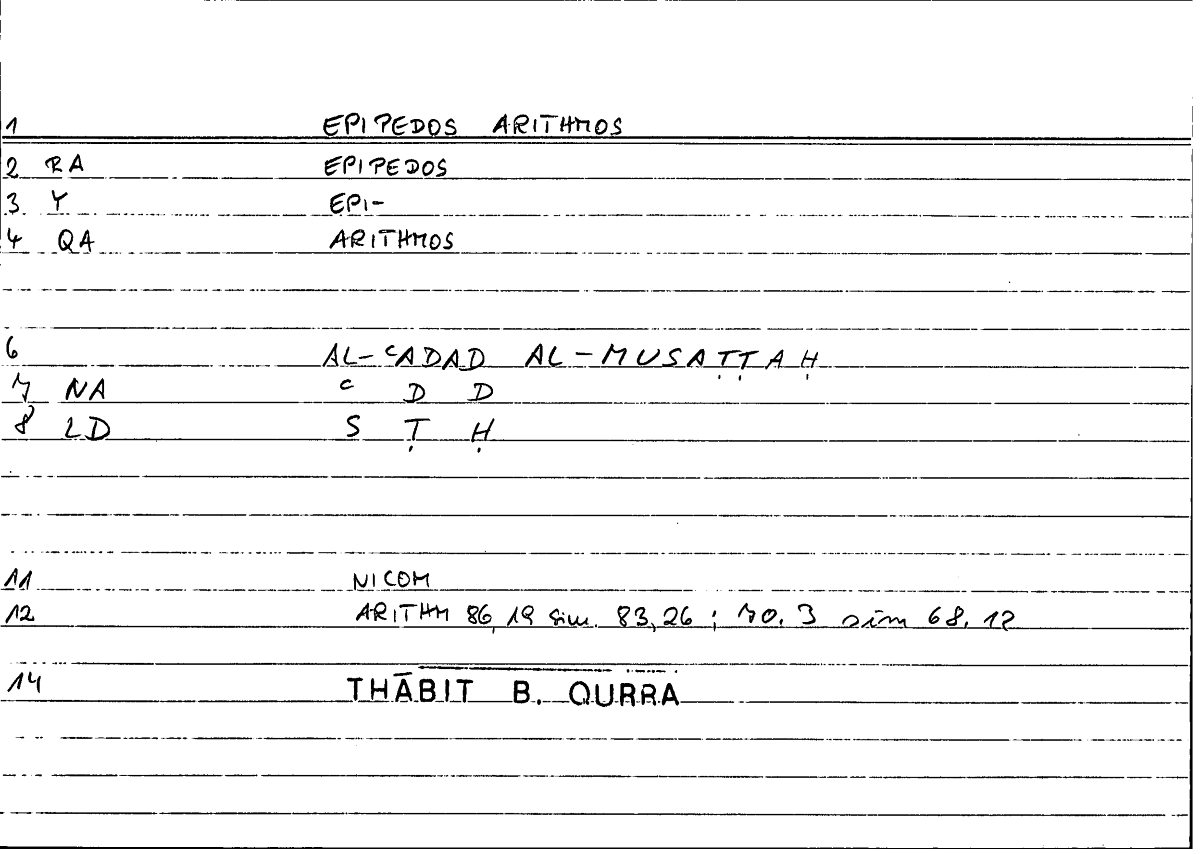 1 EPIPEDOS ARITHMOS
2 RA EPIPEDOS
3 Y EPI-
4 QA ARITHMOS
6 AL-ʿADAD AL-MUSAṬṬAḤ
7 NA ʿ D D
8 LD S Ṭ Ḥ
11 NICOM
12 ARITHM 86,19 sim. 83,26 ; 70.3 sim 68.12
14 THĀBIT B. QURRA